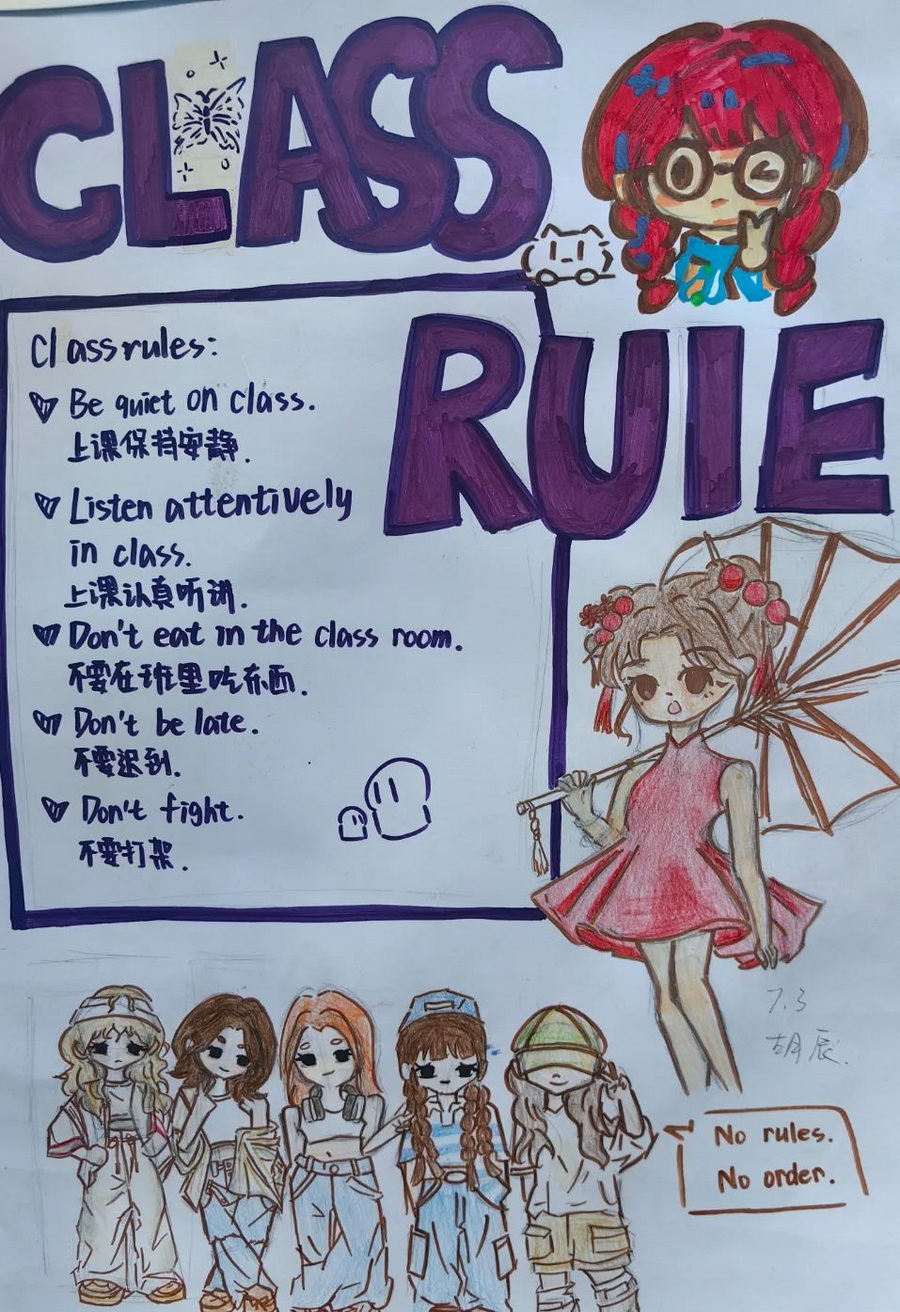 CLASS
RUlE
Class rules:
Be quiet on class.
上课保持安静.
Listen attentively
in class.
上课认真听讲.
Don't eat in the class room.
不要在班里吃东西.
Don't be late.
不要迟到.
Don't fight.
不要打架.
7.3
胡辰.
No rules.
No order.